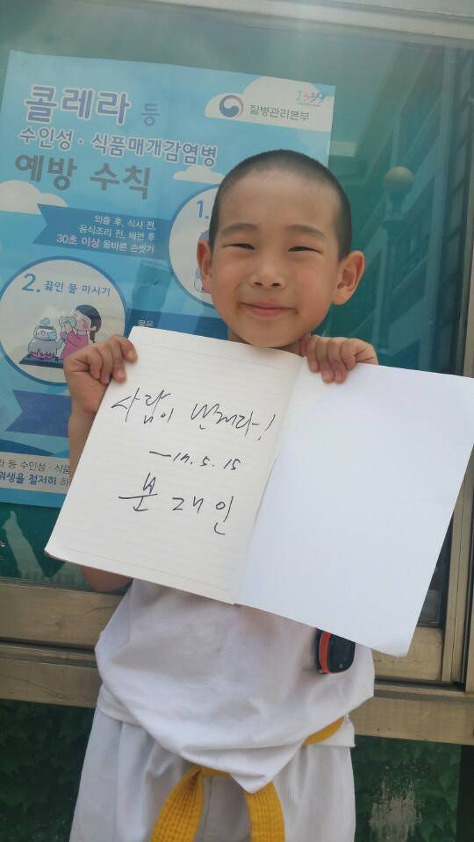 콜레라 등
수인성·식품매개감염병
예방 수칙
1339
질병관리본부
1.
외출 후, 식사 전,
음식조리 전, 배변 후
30초 이상 올바른 손씻기
2. 끓인 물 마시기
등 수인성·식품
위생을 철저히
사람이 먼저다!
17. 5. 15
문재인